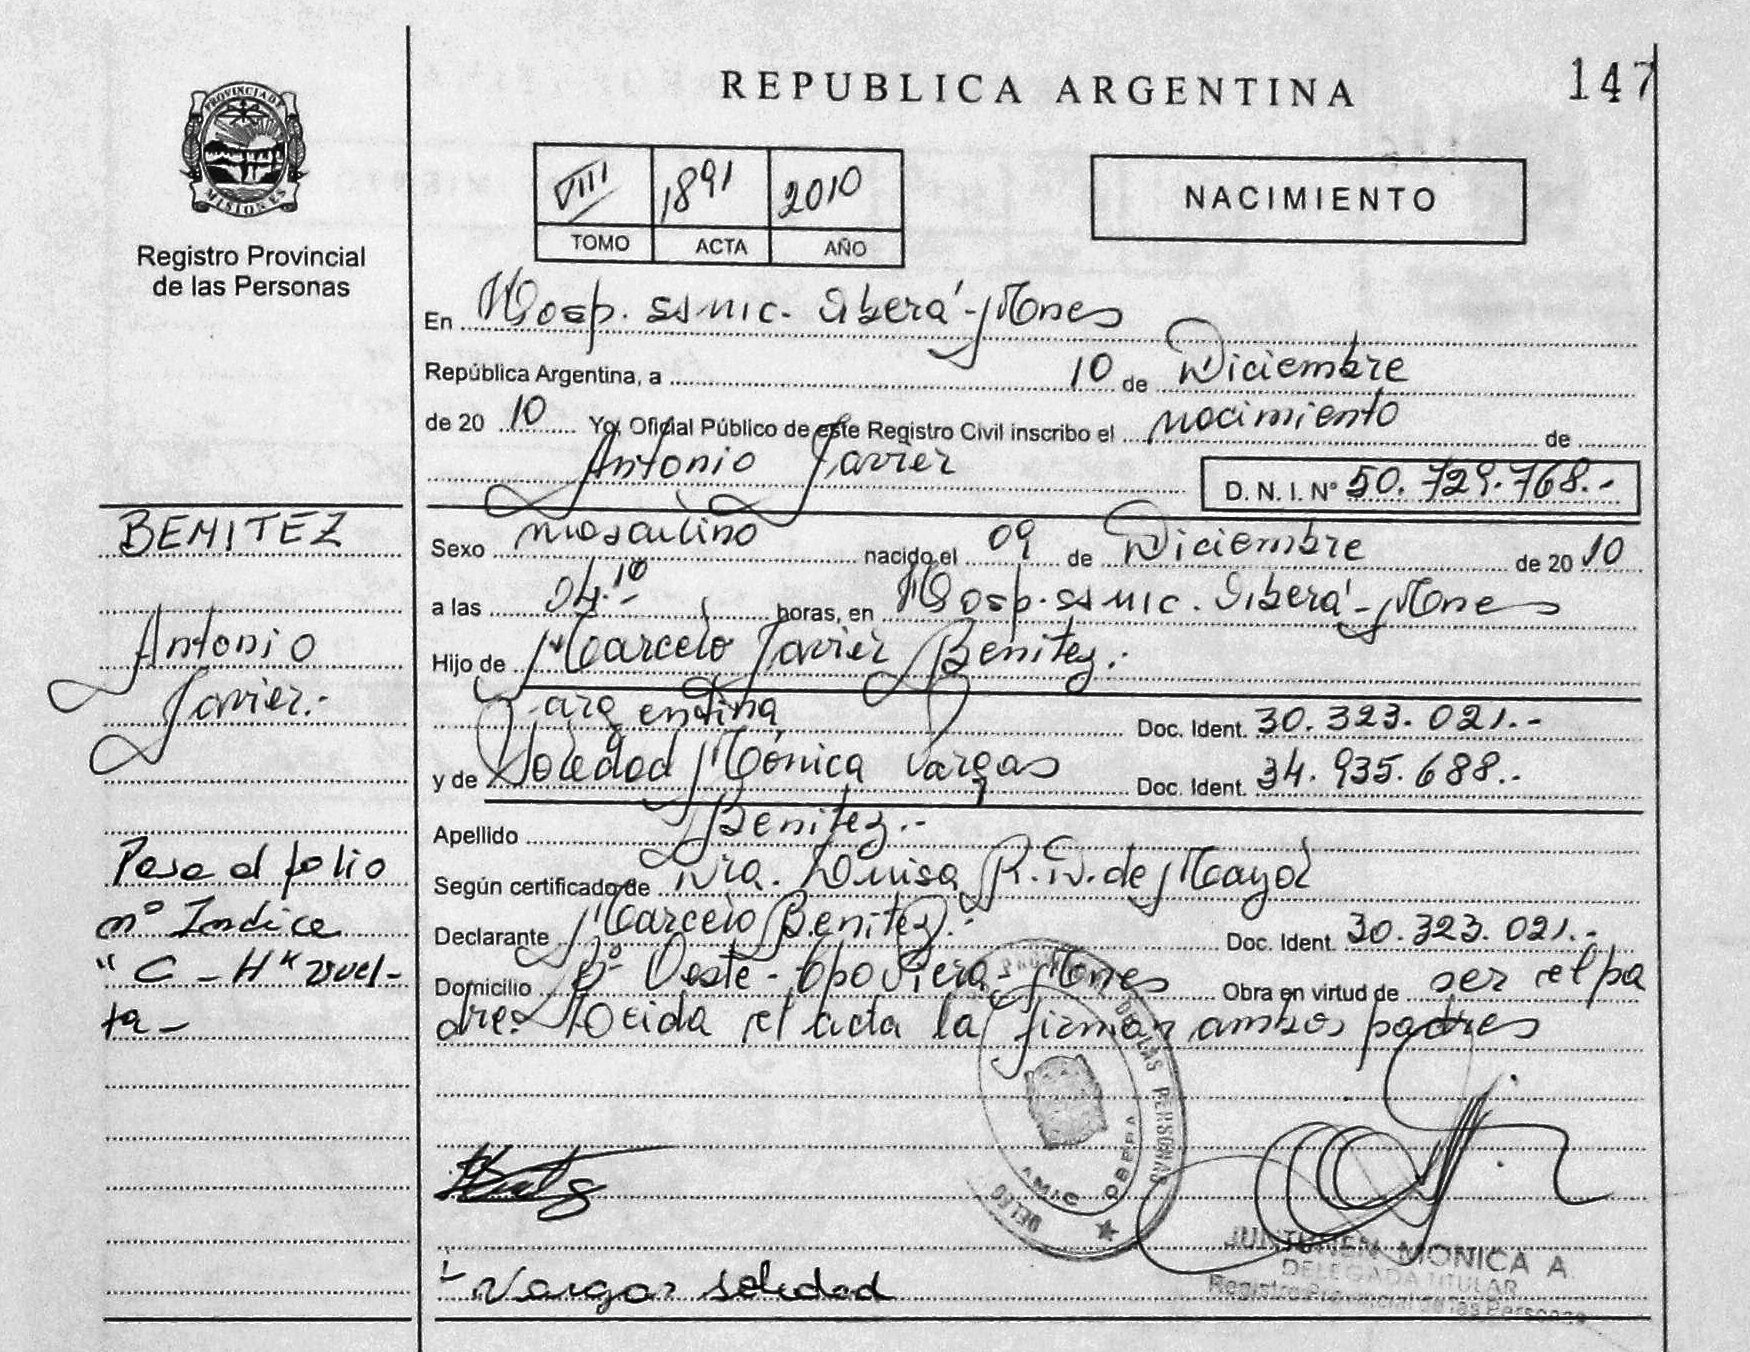 147
REPUBLICA ARGENTINA
PROVINCIA DE MISIONES
Registro Provincial
de las Personas
VIII 1891 2010
TOMO ACTA AÑO
NACIMIENTO
En Hosp. SAMIC. Oberá - Mnes
República Argentina, a 10 de Diciembre
de 2010 Yo, Oficial Público de este Registro Civil inscribo el nacimiento de
Antonio Javier
D. N. I. Nº 50.729.768.-
BENITEZ
Antonio
Javier.-
Sexo masculino nacido el 09 de Diciembre de 2010
a las 04.10 horas, en Hosp. SAMIC. Oberá - Mnes
Hijo de Marcelo Javier Benitez.-
argentina Doc. Ident. 30.323.021.-
y de Soledad Mónica Vargas Doc. Ident. 34.935.688.-
Apellido Benitez.-
Según certificado de Dra. Luisa R. D. de Mayol
Declarante Marcelo Benitez.- Doc. Ident. 30.323.021.-
Domicilio Bº Oeste - Apoviera - Mnes Obra en virtud de ser el pa
dre. Leida el acta la firman ambos padres
Pasa al folio
nº Indice
"C - H" vuel-
ta -
DE LAS PERSONAS
DELEG
SAMIC OBERA
Vargas Soledad
MONICA A
DELEGADA TITULAR
Registro Provincial de las Personas